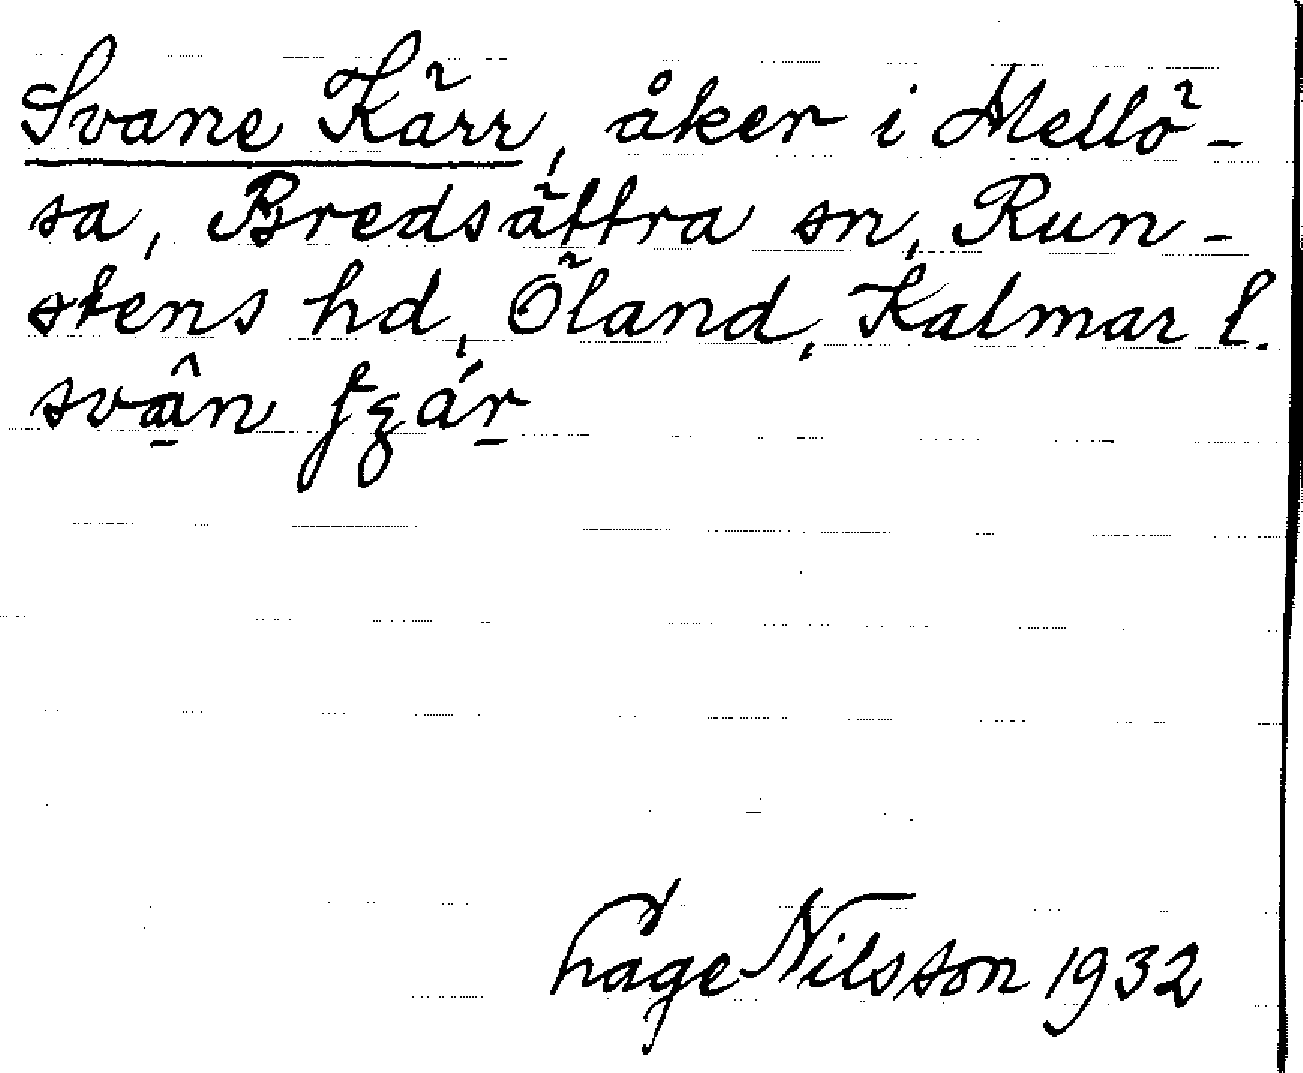 Svane Kärr, åker i Mellö-
sa, Bredsättra sn, Run-
stens hd, Öland, Kalmar l.
Nilsson 1932